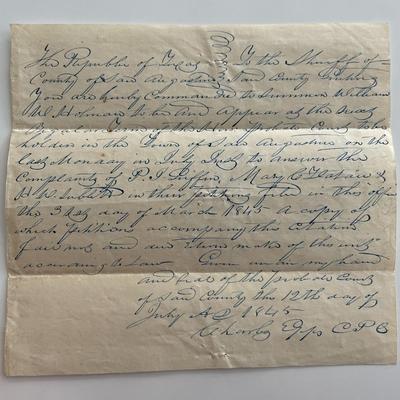 The Republic of Texas To the Sheriff of
County of San Augustine Said County Greeting
You are hereby Commanded to Summon William
W. Holman to be and appear at the next
Regular Term of the Hon. Probate Court to be
holden in the Town of San Augustine on the
last Monday in July Inst to answer the
Complaint of P. I. Mary C. &
in their petition filed in this office
the 31st day of March 1845 A copy of
which petition accompany this Citation
Fail not and due return make of this writ
according to Law Given under my hand
and Seal of the Probate Court
of said County this 12th day of
July A D 1845
Edgs C P C